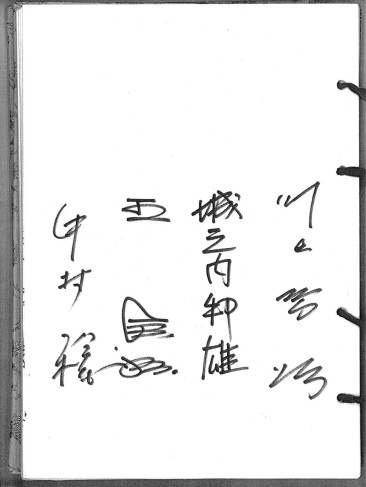 川上哲治
城之内邦雄
王貞治
中村稔